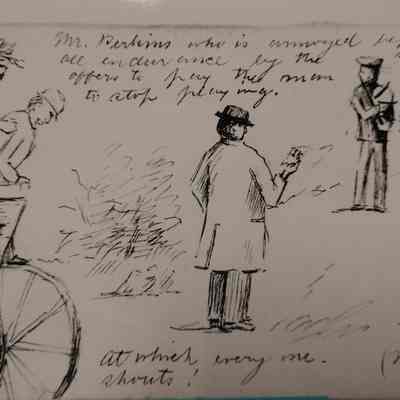 Mr. Perkins who is annoyed be
all endurance by the
offers to pay the man
to stop playing.
At which every one.
shouts!